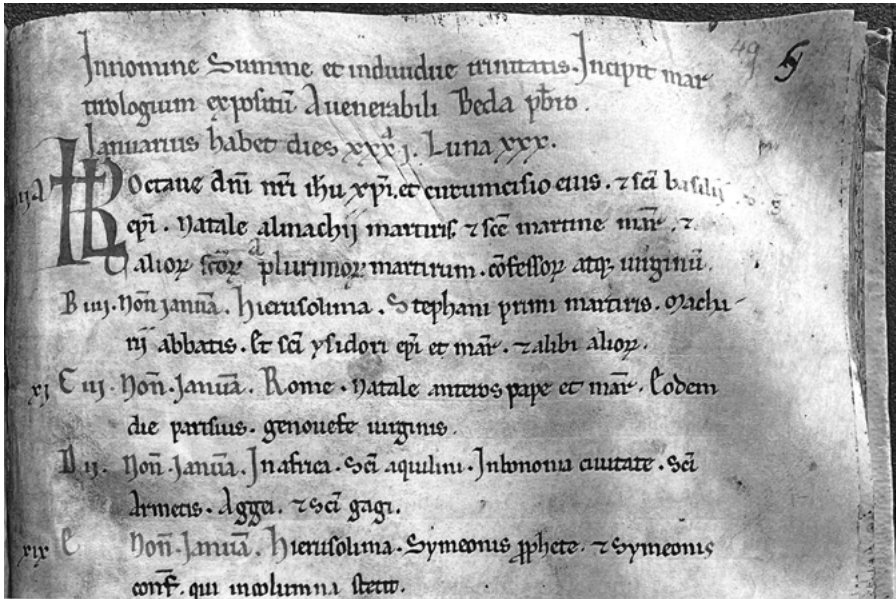 49
Innomine Summe et indiuidue trinitatis. Incipit mar
tirologium expositū Auenerabili Beda p̄bro.
Ianuarius habet dies xxxj. Luna xxx.
A KL Octaue dn̄i nr̄i ih̄u xp̄i. et circumcisio eius. ⁊ sc̄i basilij
ep̄i. Natale almachij martiris ⁊ sc̄e martine mar̄. ⁊
alioꝝ sc̄oꝝ plurimoꝝ martirum. cōfessoꝝ atqꝫ uirginū.
B iiij. Non̄ januā. Hierusolima. Stephani primi martiris. Machi-
rij abbatis. Et sc̄i ysidori ep̄i et mar̄. ⁊ alibi alioꝝ.
xj C iij. Non̄. Januā. Rome. Natale anteros pape et mar̄. Eodem
die parisius. genouefe uirginis.
D ij. Non̄. Januā. Inafrica. Sc̄i aquilini. Inbononia ciuitate. Sc̄i
Armetis. Aggei. ⁊ sc̄i gagi.
xix E Non̄. Januā. Hierusolima. Symeonis ꝓphete. ⁊ Symeonis
conf̄. qui incolumna stetit.